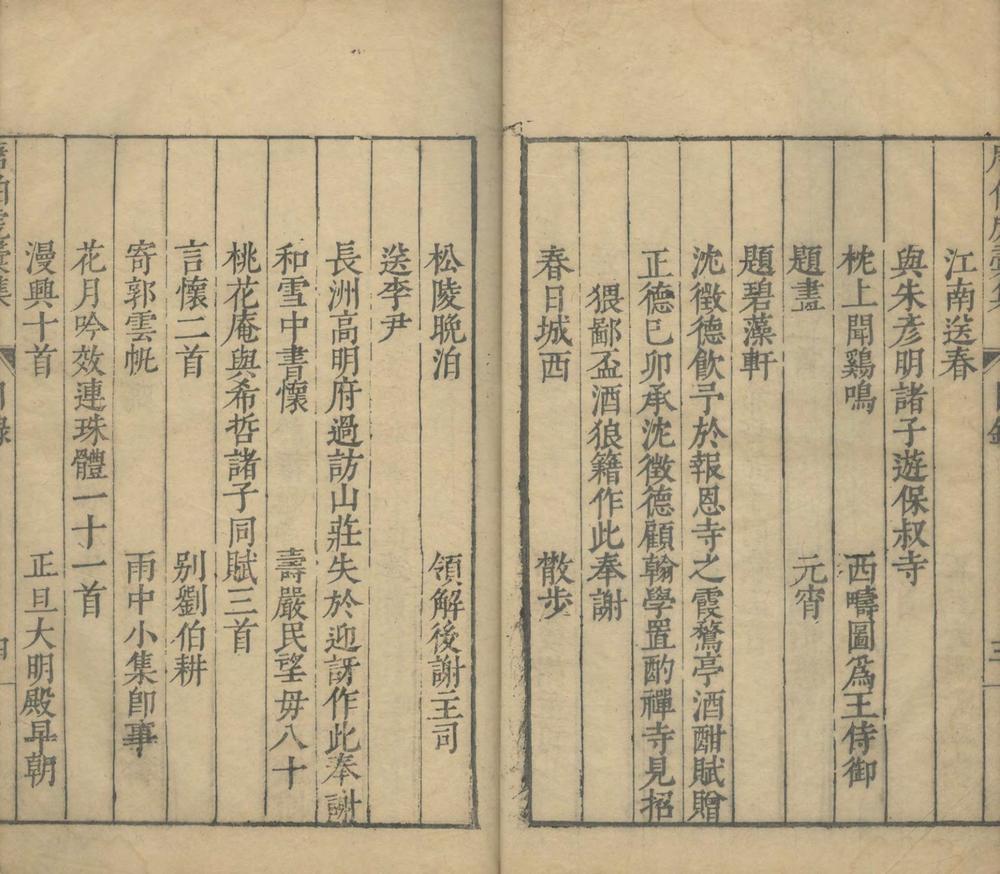 江南送春
與朱彥明諸子遊保叔寺
枕上聞鷄鳴　西疇圖爲王侍御
題畫　元宵
題碧藻軒
沈徵德飲予於報恩寺之霞鶩亭酒酣賦贈
正德己卯承沈徵德顧翰學置酌禪寺見招
猥鄙盃酒狼籍作此奉謝
春日城西　散步
松陵晚泊　領解後謝主司
送李尹
長洲高明府過訪山莊失於迎訝作此奉謝
和雪中書懷　壽嚴民望毋八十
桃花庵與希哲諸子同賦三首
言懷二首　别劉伯耕
寄郭雲帆　雨中小集卽事
花月吟效連珠體一十一首
漫興十首　正旦大明殿早朝
唐伯虎彙集　目録　四